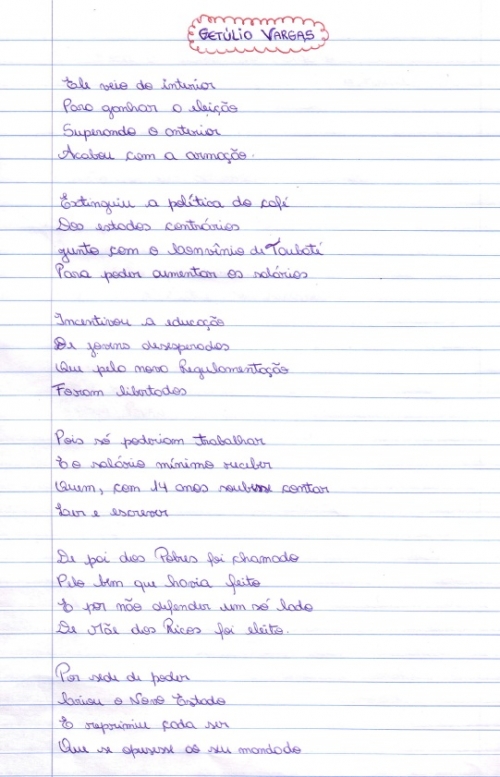 GETÚLIO VARGAS
Ele veio do interior
Para ganhar a eleição
Superando o anterior
Acabou com a armação.
Extinguiu a política do café
Dos estados contrários
junto com o Convênio de Taubaté
Para poder aumentar os salários
Incentivou a educação
De jovens desesperados
Que pela nova Regulamentação
Foram libertados
Pois só poderiam trabalhar
E o salário mínimo receber
Quem, com 14 anos soubesse contar
Ler e escrever
De pai dos Pobres foi chamado
Pelo bem que havia feito
E por não defender um só lado
De Mãe dos Ricos foi eleito.
Por sede de poder
Criou o Novo Estado
E reprimiu cada ser
Que se opusesse ao seu mandado